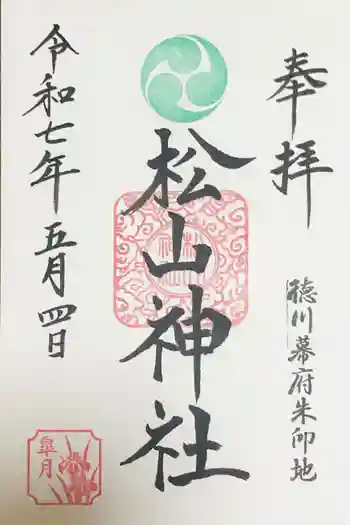 奉拝
徳川幕府朱印地
松山神社
令和七年 五月四日
皐月